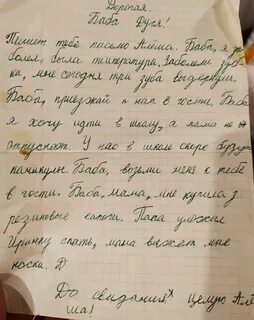 Дорогая
Баба Дуся!
Пишет тебе письмо Алёша. Баба, я за
болел, была температура, заболели зуб
ки, мне сегодня три зуба выдернули.
Баба, приезжай к нам в гости. Баба
я хочу идти в школу, а мама не
отпускает. У нас в школе скоро будут
каникулы. Баба, возьми меня к тебе
в гости. Баба, мама, мне купила
резиновые сапоги. Папа уложил
Иринку спать, мама вяжет мне
носки. Д
До свидания целую Алё
ша!